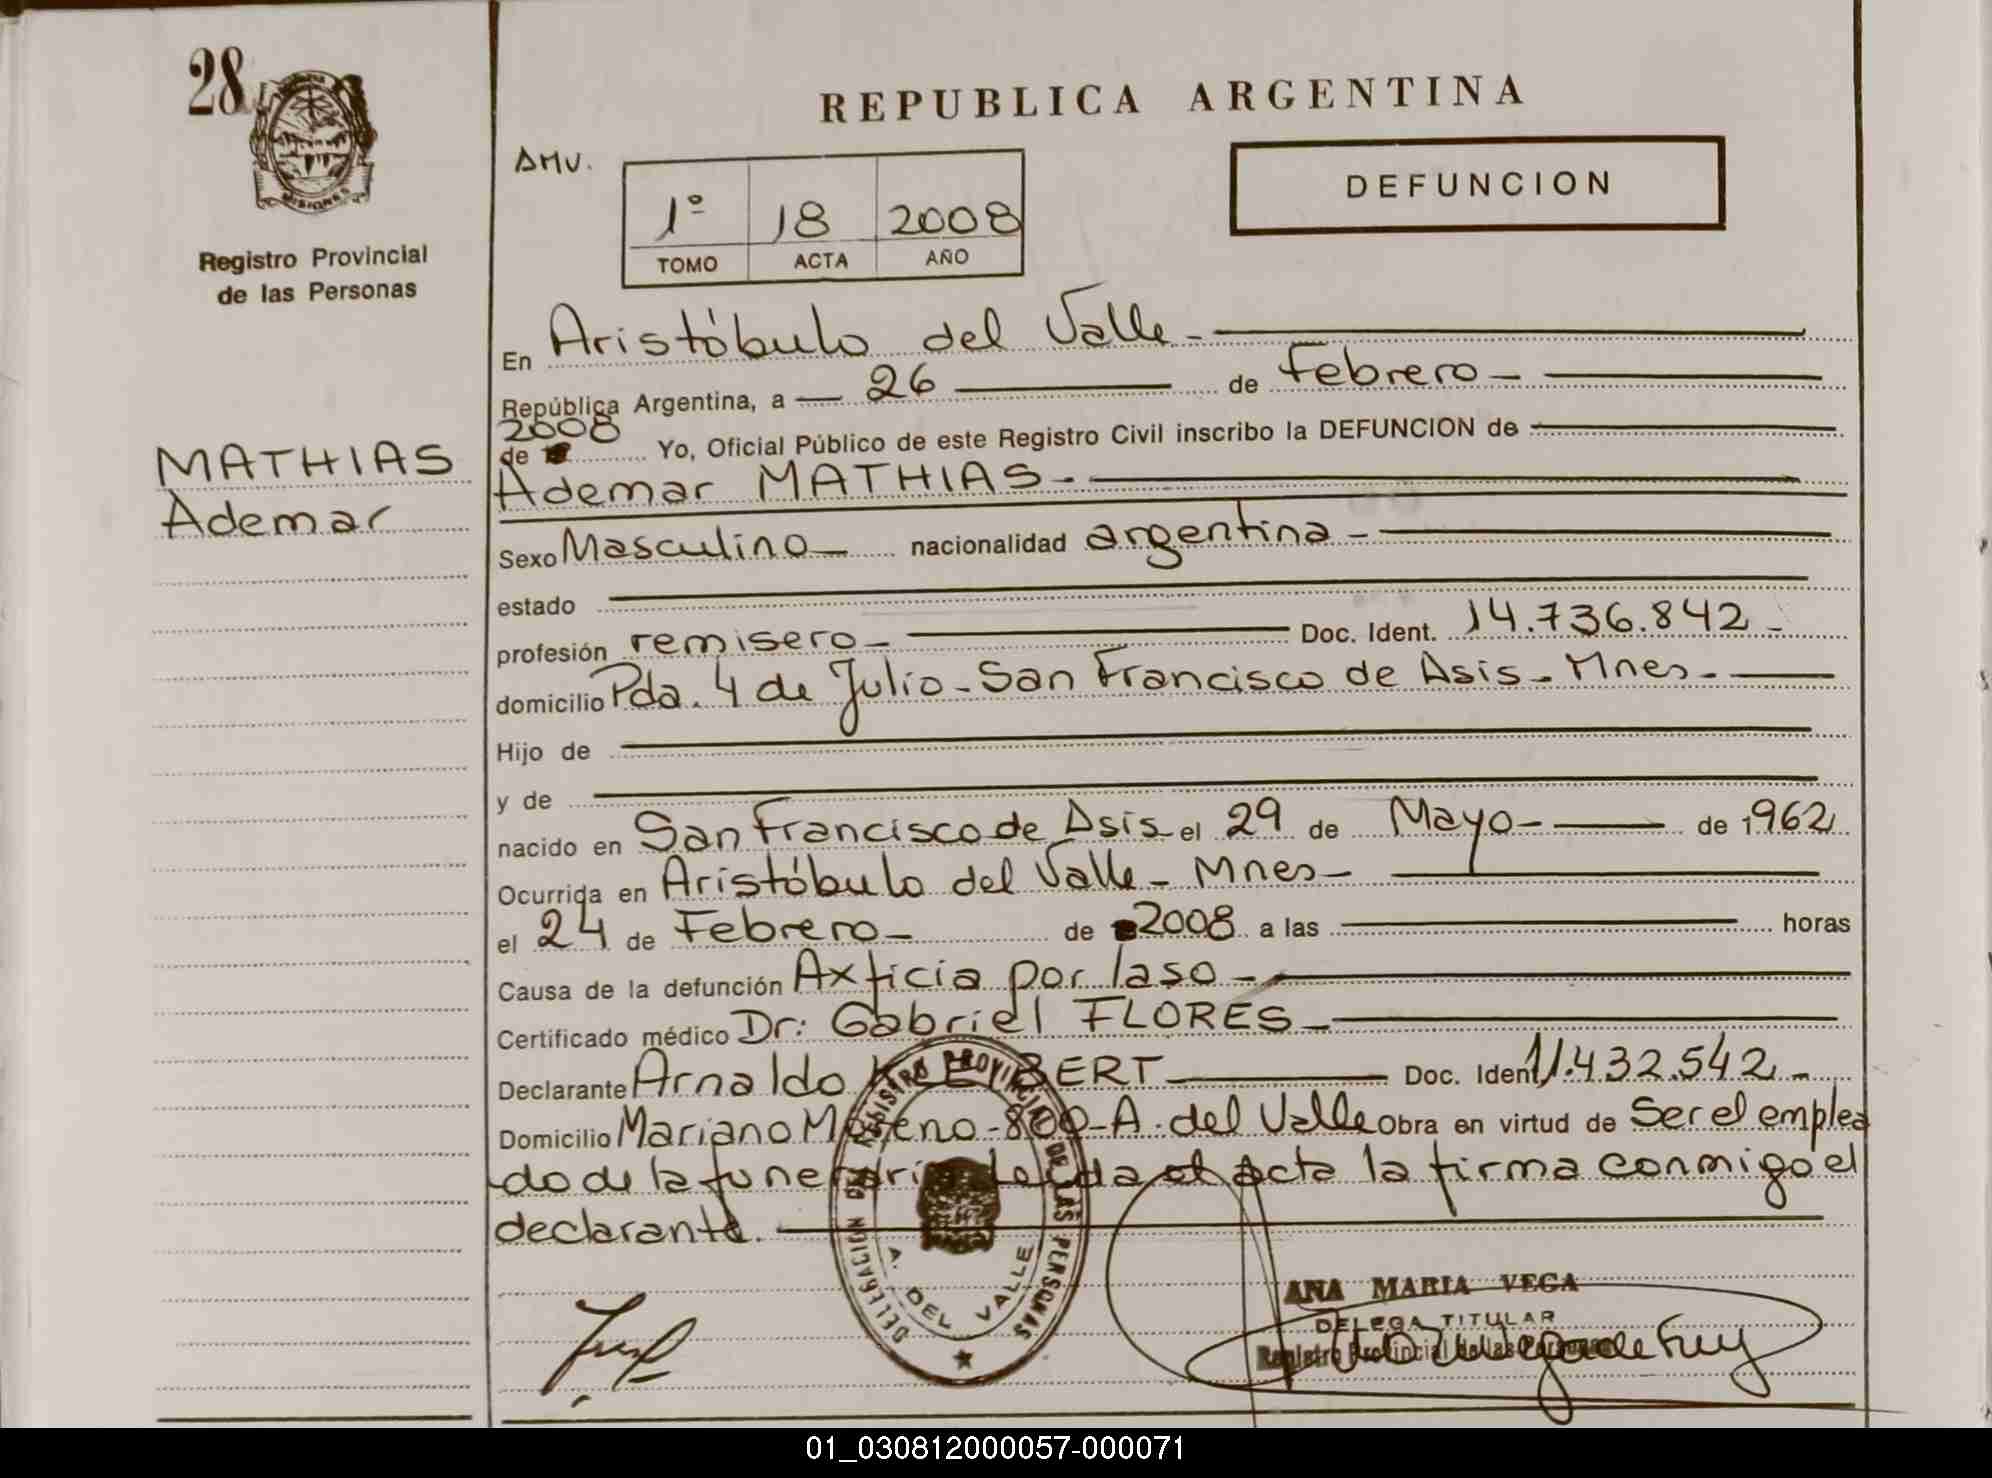 28
MISIONES
Registro Provincial
de las Personas
MATHIAS
Ademar
REPUBLICA ARGENTINA
AMV.
DEFUNCION
1º 18 2008
TOMO ACTA AÑO
En Aristóbulo del Valle -
República Argentina, a 26 de Febrero -
2008
de Yo, Oficial Público de este Registro Civil inscribo la DEFUNCION de
Ademar MATHIAS -
Sexo Masculino nacionalidad argentina -
estado
profesión remisero - Doc. Ident. 14.736.842 -
domicilio Pda. 4 de Julio - San Francisco de Asis - Mnes -
Hijo de
y de
nacido en San Francisco de Asis el 29 de Mayo - de 1962
Ocurrida en Aristóbulo del Valle - Mnes -
el 24 de Febrero - de 2008 a las horas
Causa de la defunción Axficia por laso -
Certificado médico Dr: Gabriel FLORES -
Declarante Arnaldo Doc. Ident 11.432.542 -
Domicilio Mariano Moreno - 800 - A. del Valle Obra en virtud de Ser el emplea
do de la funeraria Leida el acta la firma conmigo el
declarante.
DELEGACION DEL REGISTRO PROVINCIAL DE LAS PERSONAS
A. DEL VALLE
ANA MARIA VEGA
DELEGA TITULAR
Registro Provincial de las Personas
01_030812000057-000071